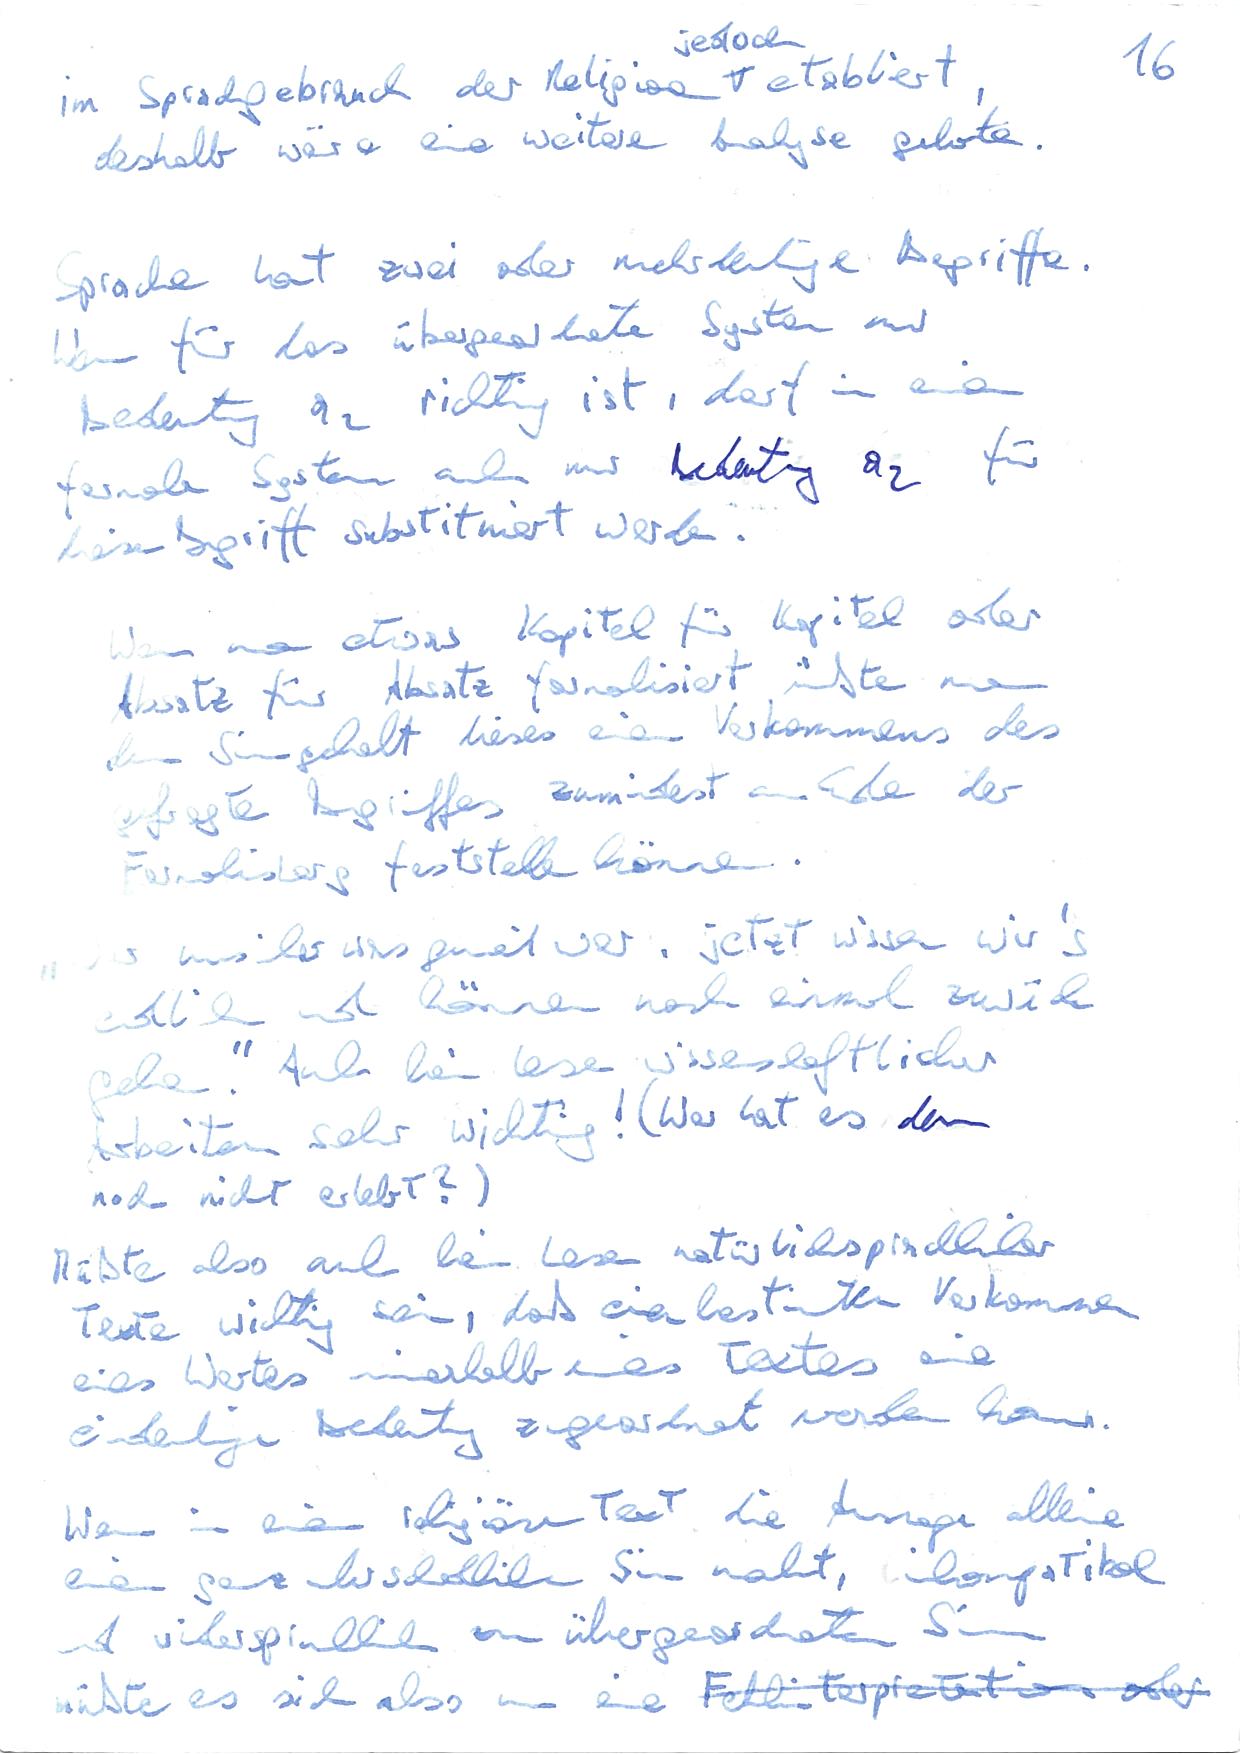 16
jedoch
im Sprachgebrauch der Religion etabliert,
deshalb wäre eine weitere Analyse geboten.
Sprache hat zwei oder mehrdeutige Begriffe.
Wenn für das übergeordnete System nur
Bedeutung a2 richtig ist, darf in einem
formalen System auch nur Bedeutung a2 für
diesen Begriff substituiert werden.
Wenn man etwas Kapitel für Kapitel oder
Absatz für Absatz formalisiert müßte man
den Sinngehalt dieses einen Vorkommens des
gefragten Begriffes zumindest am Ende der
Formalisierung feststellen können.
" was gemeint war, jetzt wissen wir's
endlich und können noch einmal zurück
gehen." Auch beim Lesen wissenschaftlicher
Arbeiten sehr wichtig! (Wer hat es denn
noch nicht erlebt?)
Müßte also auch beim Lesen natürlichsprachlicher
Texte wichtig sein, daß einem bestimmten Vorkommen
eines Wortes innerhalb eines Textes eine
eindeutige Bedeutung zugeordnet werden kann.
Wenn in einem religiösen Text die Aussage alleine
einen ganz unterschiedlichen Sinn macht, inkompatibel
und widersprüchlich zum übergeordneten Sinn
müßte es sich also um eine Fehlinterpretation oder